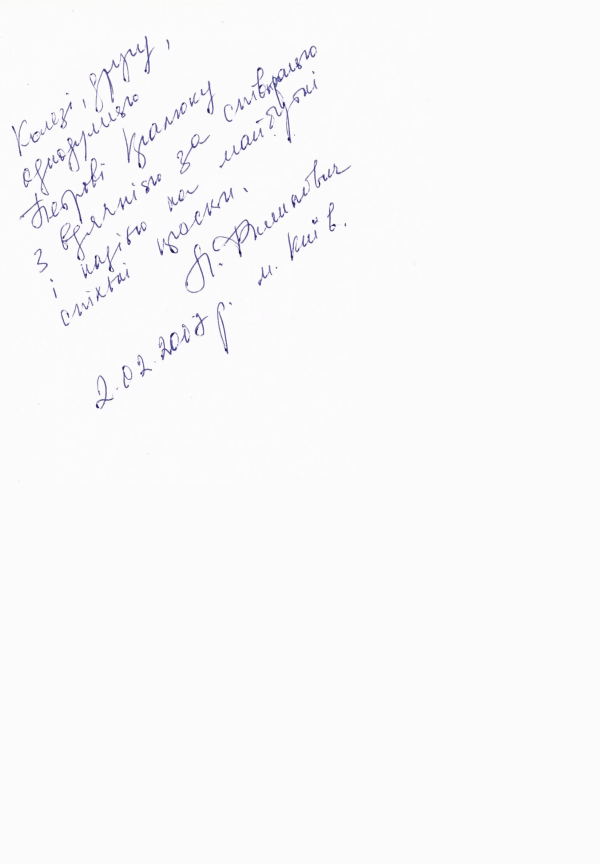 Колезі, другу,
однодумцю
Петрові Кралюку
з вдячністю за співпрацю
і надією на майбутні
спільні кроки.
Л. Филипович
2.02.2007 р. м. Київ.